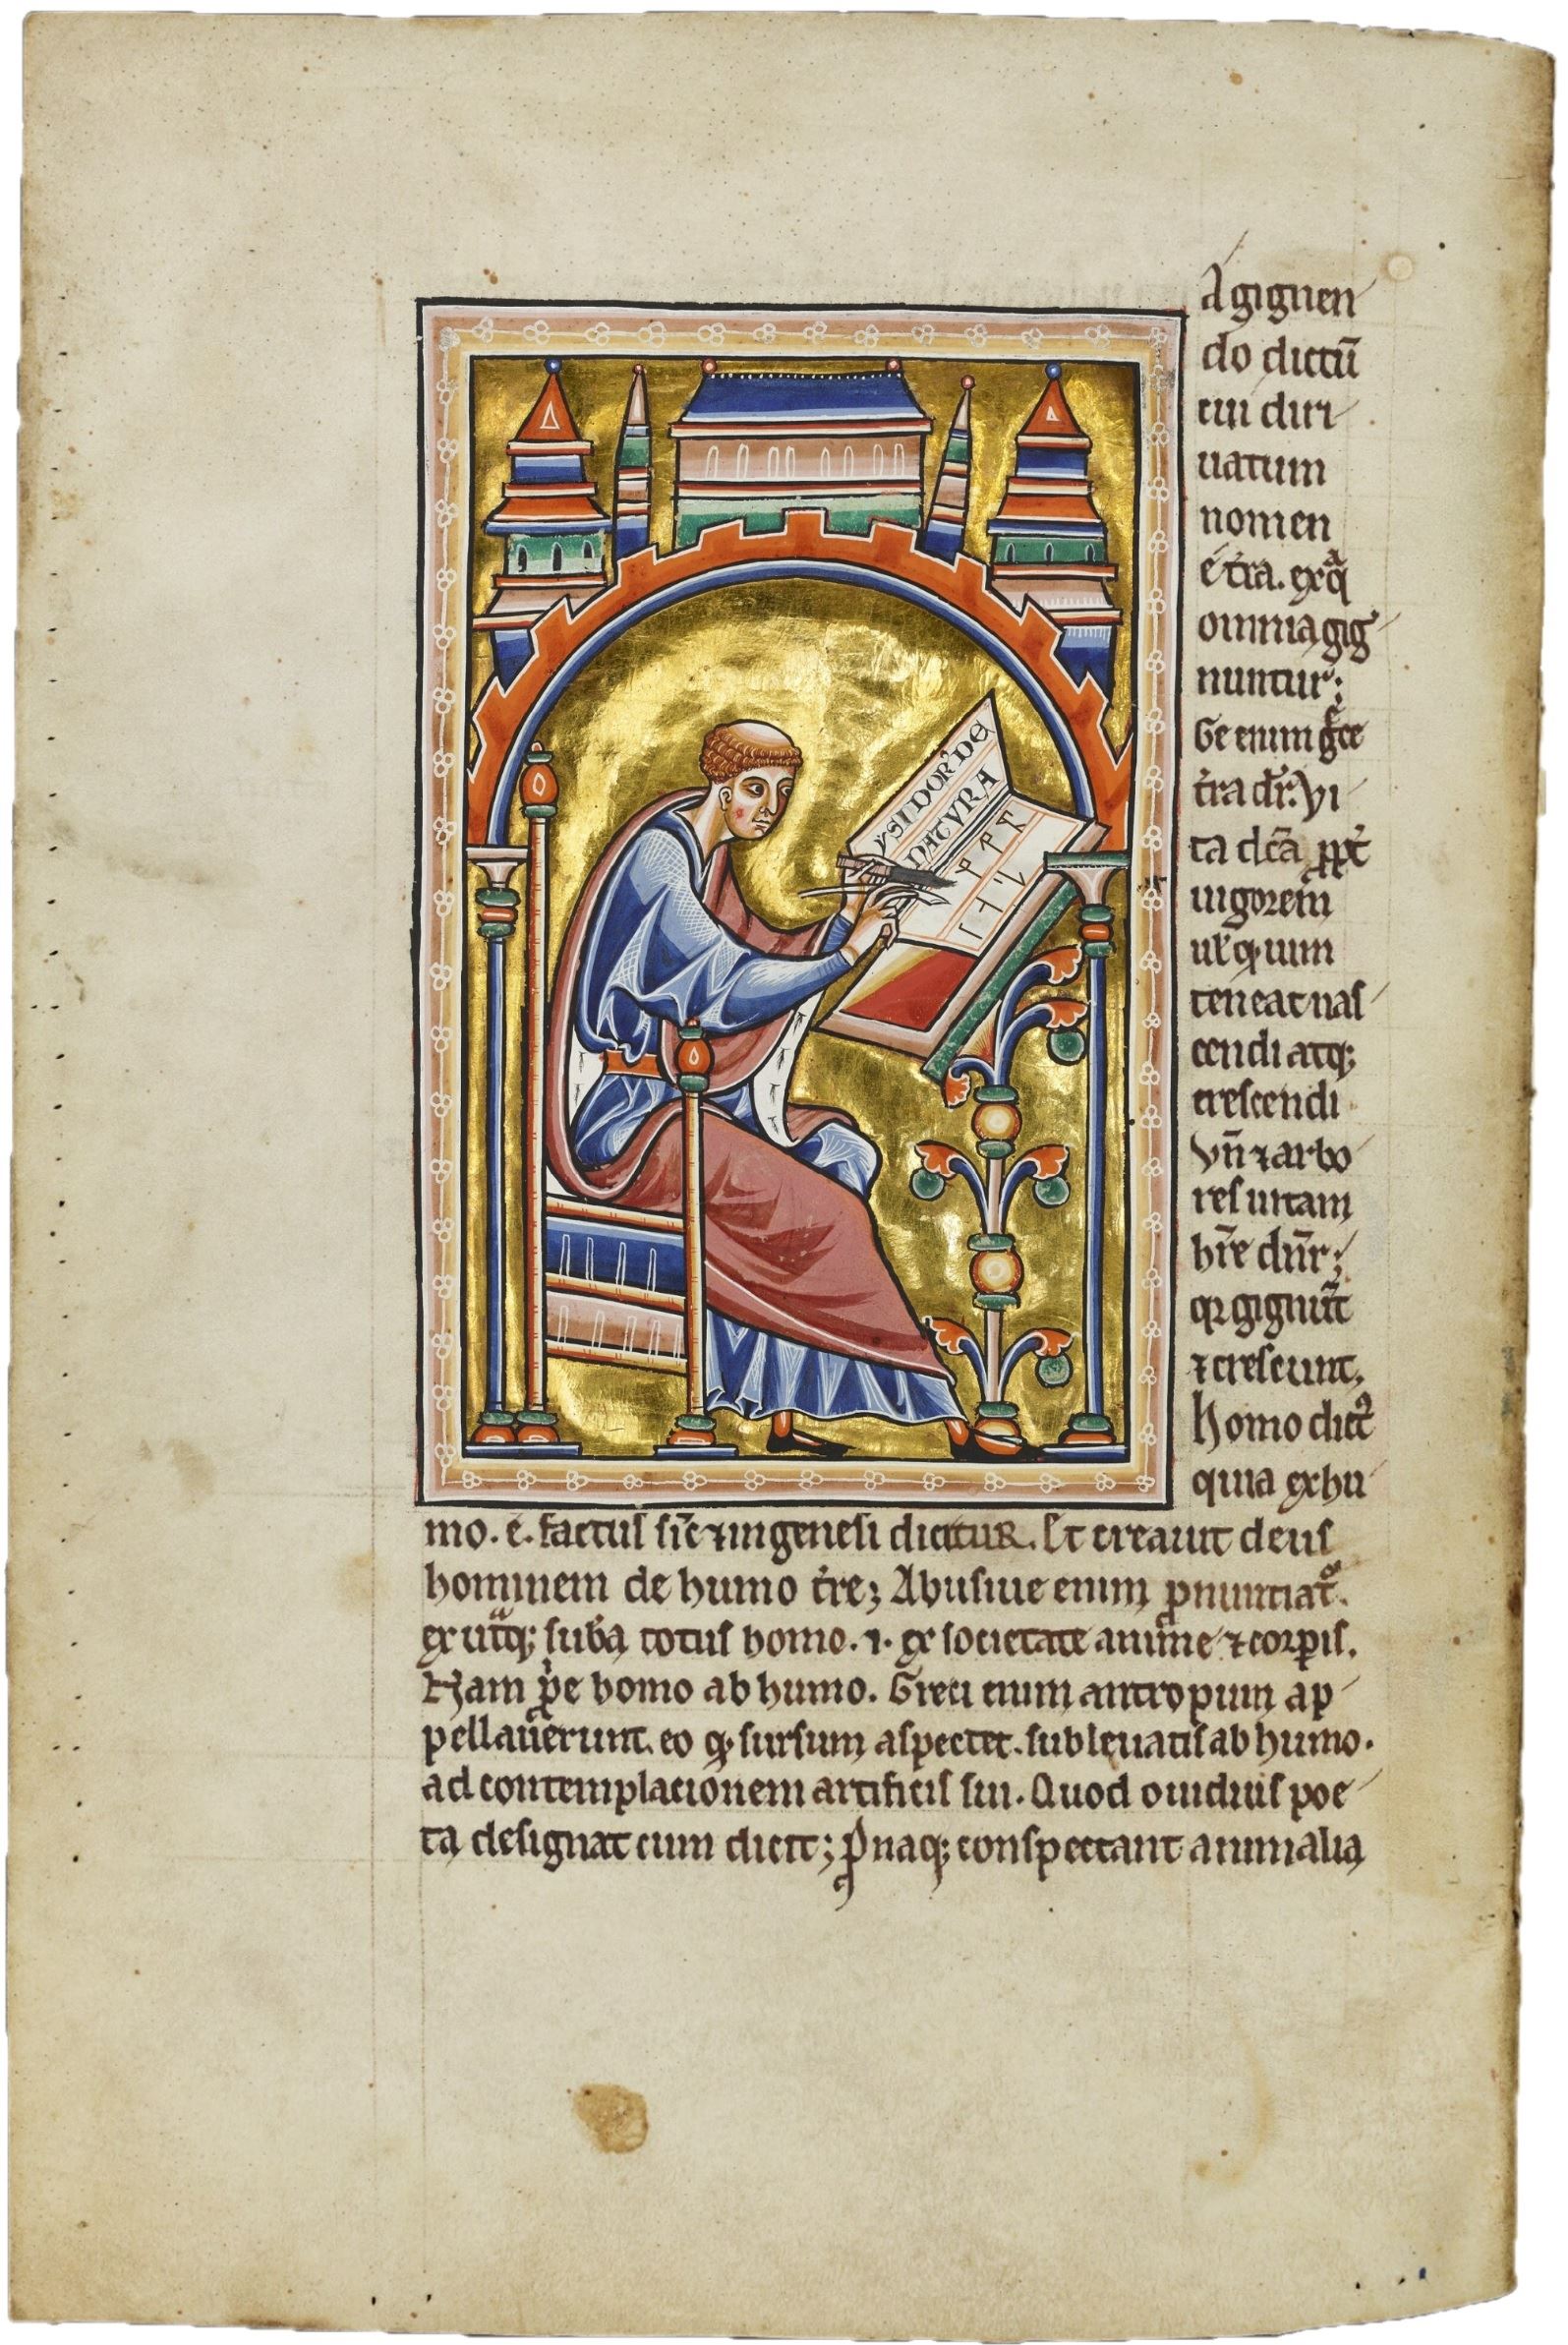 ysidor' de
natura
A gignen
do dictū
cui diri
uatum
nomen
ē t̓ra. ex q̄
omnia gig
nuntur;
Ge enim g̓ce
t̓ra dr̄. Vi
ta dc̄a ꝓpt̓
uigorem
ul̓ ꝙ uim
teneat nas
cendi atq;
crescendi
vn̄ ⁊ arbo
res uitam
hr̄e dn̄r;
q2 gignūt̄
⁊ crescunt.
homo dict̾
quia ex hu
mo. ē. factus sic̄ ⁊ in genesi dicitur. Et creauit deus
hominem de humo t̓re; Abusiue enim ꝓnuntiat̾.
ex ut̾q; sub̓a totus homo. .i. ex societate anime ⁊ corꝑis.
Nam ꝓp̓e homo ab humo. Greci enim antropum ap
pellauerunt. eo ꝙ sursum aspectet. subleuatus ab humo.
ad contemplacionem artificis sui. Quod ouidius poe
ta designat cum dicit; Pronaq; conspectant animalia